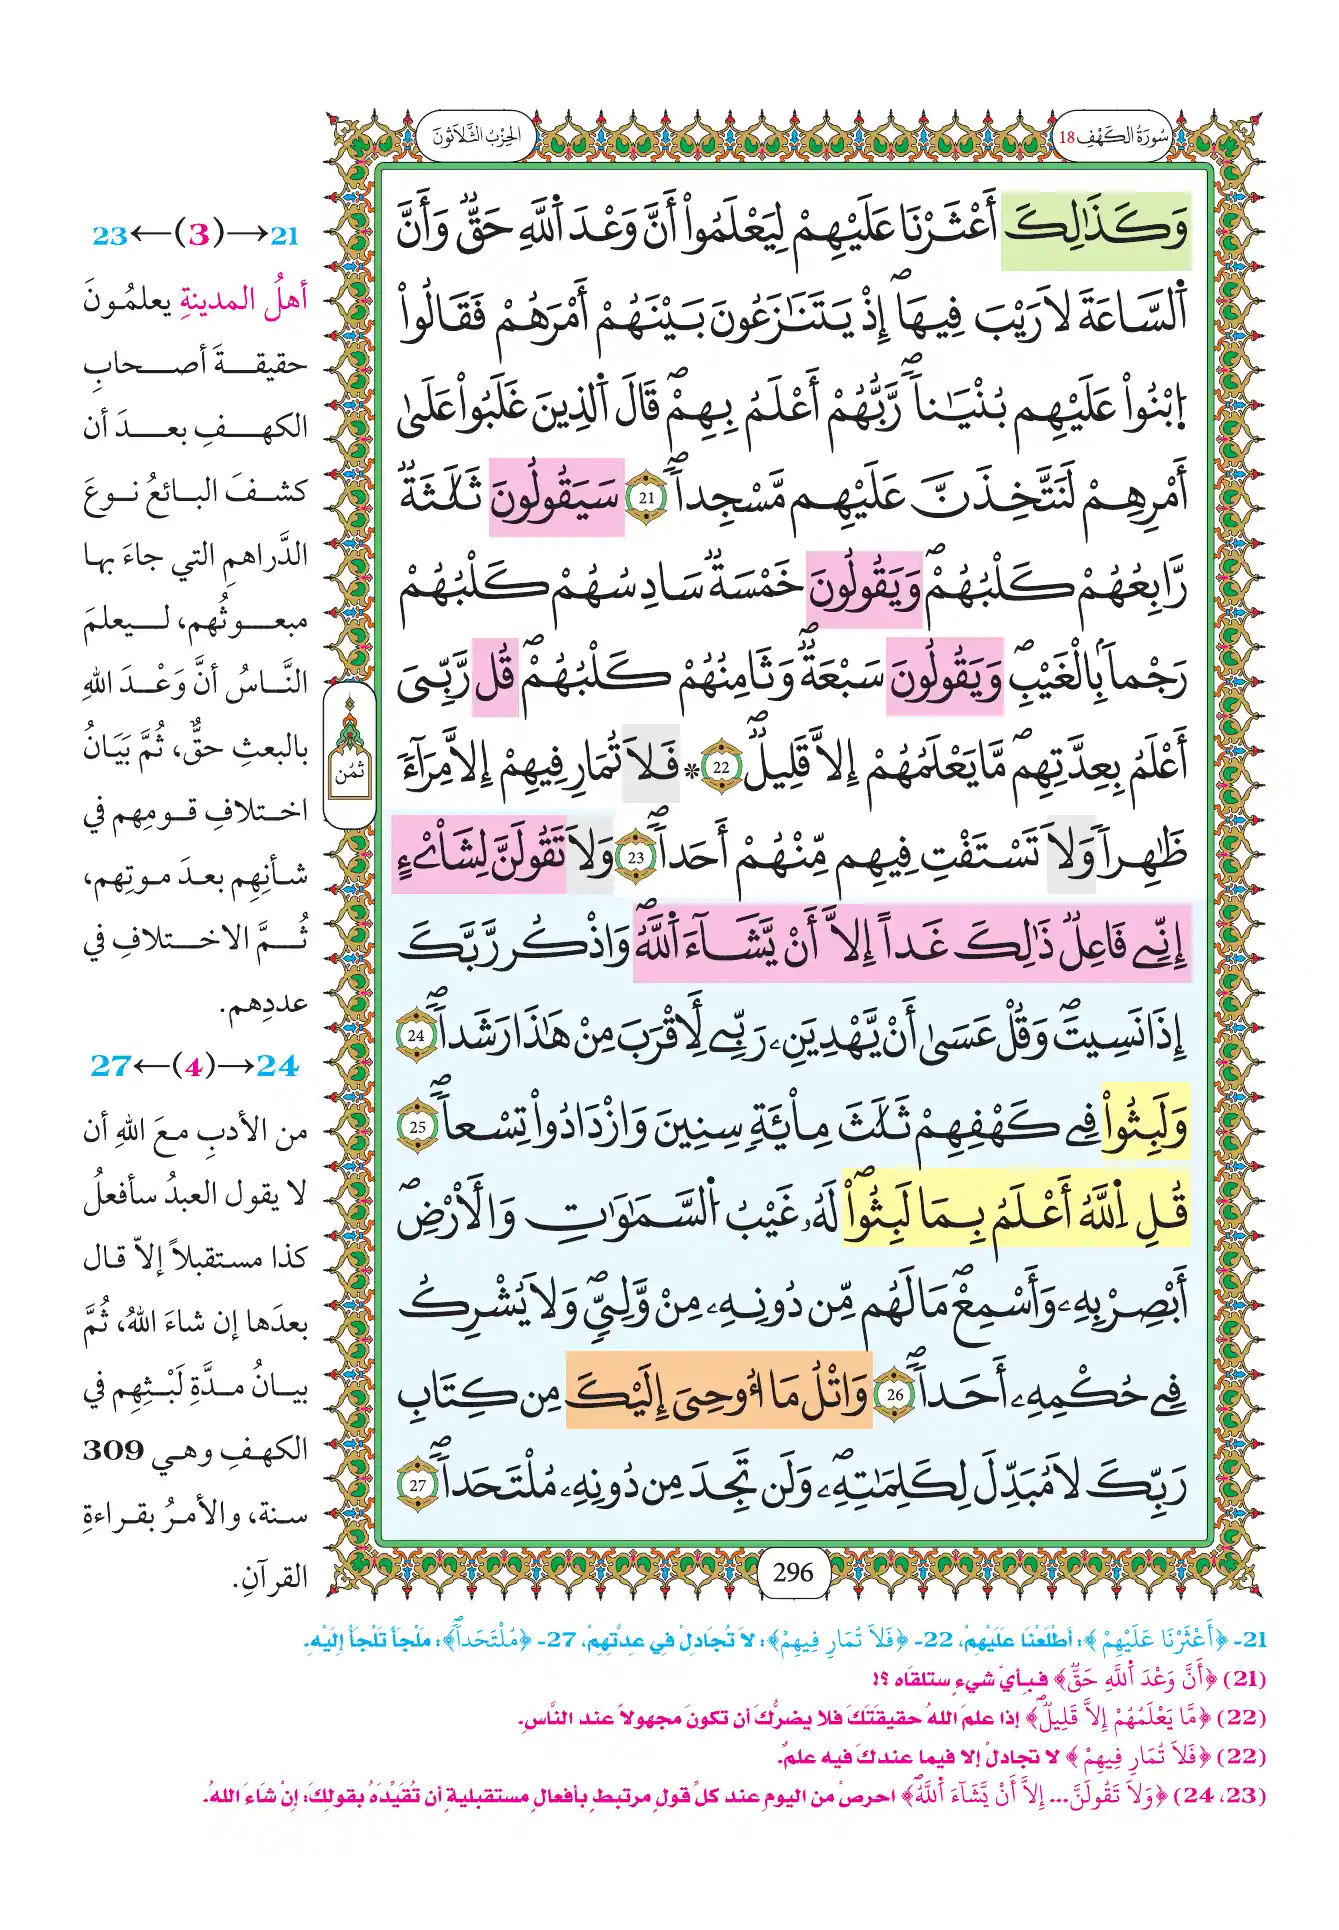 سُورَةُ الكَهْفِ 18
الحِزْبُ الثَّلَاثُونَ
وَكَذَٰلِكَ أَعْثَرْنَا عَلَيْهِمْ لِيَعْلَمُوٓاْ أَنَّ وَعْدَ اَ۬للَّهِ حَقّٞ وَأَنَّ
اَ۬لسَّاعَةَ لَا رَيْبَ فِيهَآۖ إِذْ يَتَنَٰزَعُونَ بَيْنَهُمْ أَمْرَهُمْ فَقَالُواْ
اُ۪بْنُواْ عَلَيْهِم بُنْيَٰناٗۖ رَّبُّهُمْ أَعْلَمُ بِهِمْۖ قَالَ اَ۬لذِينَ غَلَبُواْ عَلَىٰٓ
أَمْرِهِمْ لَنَتَّخِذَنَّ عَلَيْهِم مَّسْجِداٗۖ 21 سَيَقُولُونَ ثَلَٰثَةٞ
رَّابِعُهُمْ كَلْبُهُمْۖ وَيَقُولُونَ خَمْسَةٞ سَادِسُهُمْ كَلْبُهُمْ
رَجْماَۢ بِالْغَيْبِۖ وَيَقُولُونَ سَبْعَةٞۖ وَثَامِنُهُمْ كَلْبُهُمْۖ قُل رَّبِّيَ
أَعْلَمُ بِعِدَّتِهِمۖ مَّا يَعْلَمُهُمْ إِلَّا قَلِيلٞۖ 22 * فَلَا تُمَارِ فِيهِمْ إِلَّا مِرَآءٗ
ظَٰهِراٗ وَلَا تَسْتَفْتِ فِيهِم مِّنْهُمْ أَحَداٗۖ 23 وَلَا تَقُولَنَّ لِشَاْےْءٍ
اِنِّے فَاعِلٞ ذَٰلِكَ غَداً اِلَّآ أَنْ يَّشَآءَ اَ۬للَّهُۖ وَاذْكُر رَّبَّكَ
إِذَا نَسِيتَۖ وَقُلْ عَسَىٰٓ أَنْ يَّهْدِيَنِۦ رَبِّے لِأَقْرَبَ مِنْ هَٰذَا رَشَداٗۖ 24
وَلَبِثُواْ فِے كَهْفِهِمْ ثَلَٰثَ مِاْئَةٖ سِنِينَ وَازْدَادُواْ تِسْعاٗۖ 25
قُلِ اِ۬للَّهُ أَعْلَمُ بِمَا لَبِثُواْۖ لَهُۥ غَيْبُ اُ۬لسَّمَٰوَٰتِ وَالْأَرْضِۖ
أَبْصِرْ بِهِۦ وَأَسْمِعْۖ مَا لَهُم مِّن دُونِهِۦ مِنْ وَّلِيّٖۖ وَلَا يُشْرِكُ
فِے حُكْمِهِۦٓ أَحَداٗۖ 26 وَاتْلُ مَآ أُوحِيَ إِلَيْكَ مِن كِتَابِ
رَبِّكَ لَا مُبَدِّلَ لِكَلِمَٰتِهِۦۖ وَلَن تَجِدَ مِن دُونِهِۦ مُلْتَحَداٗۖ 27
ثمُن
296
21←(3)→23
أهلُ المدينةِ يعلمُونَ
حقيقةَ أصحابِ
الكهفِ بعدَ أن
كشفَ البائعُ نوعَ
الدَّراهمِ التي جاءَ بها
مبعوثُهم، ليعلمَ
النَّاسُ أنَّ وَعْدَ اللهِ
بالبعثِ حقٌّ، ثُمَّ بَيَانُ
اختلافِ قومِهم في
شأنِهِم بعدَ موتِهم،
ثُمَّ الاختلافِ في
عددِهم.
24←(4)→27
من الأدبِ معَ اللهِ أن
لا يقول العبدُ سأفعلُ
كذا مستقبلاً إلاّ قال
بعدَها إن شاءَ اللهُ، ثُمَّ
بيانُ مدَّةِ لَبْثِهِم في
الكهفِ وهي 309
سنة، والأمرُ بقراءةِ
القرآنِ.
21- ﴿أَعْثَرْنَا عَلَيْهِمْ﴾: أَطْلَعْنَا عَلَيْهِمْ، 22- ﴿فَلَا تُمَارِ فِيهِمْ﴾: لاَ تُجَادِلْ فِي عِدَّتِهِمْ، 27- ﴿مُلْتَحَداٗۖ﴾: مَلْجَأً تَلْجَأُ إِلَيْهِ.
(21) ﴿أَنَّ وَعْدَ اَ۬للَّهِ حَقّٞ﴾ فبأيّ شيءٍ ستلقاه ؟!
(22) ﴿مَّا يَعْلَمُهُمْ إِلَّا قَلِيلٞۖ﴾ إذا علمَ اللهُ حقيقتَكَ فلا يضرُّكَ أن تكونَ مجهولاً عند النَّاسِ.
(22) ﴿فَلَا تُمَارِ فِيهِمْ﴾ لا تجادلْ إلا فيما عندكَ فيه علمٌ.
(23، 24) ﴿وَلَا تَقُولَنَّ... إِلَّآ أَنْ يَّشَآءَ اَ۬للَّهُۖ﴾ احرصْ من اليومِ عند كلِّ قولٍ مرتبطٍ بأفعالٍ مستقبليةٍ أن تُقَيِّدَهُ بقولِكَ: إِنْ شَاءَ اللهُ.